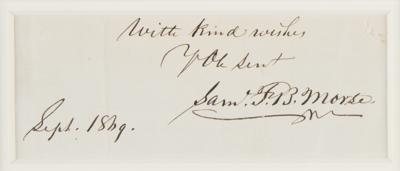 With kind wishes
Yr Ob Servt
Saml. F. B. Morse.
Sept. 1869.